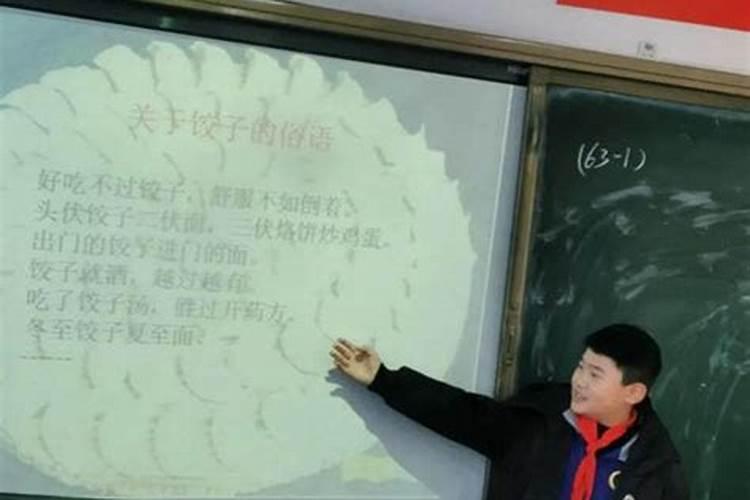 关于饺子的俗语
好吃不过饺子，舒服不如倒着。
头伏饺子二伏面，三伏烙饼炒鸡蛋。
出门的饺子进门的面。
饺子就酒，越过越有。
吃了饺子汤，胜过开药方。
冬至饺子夏至面。
(63-1)